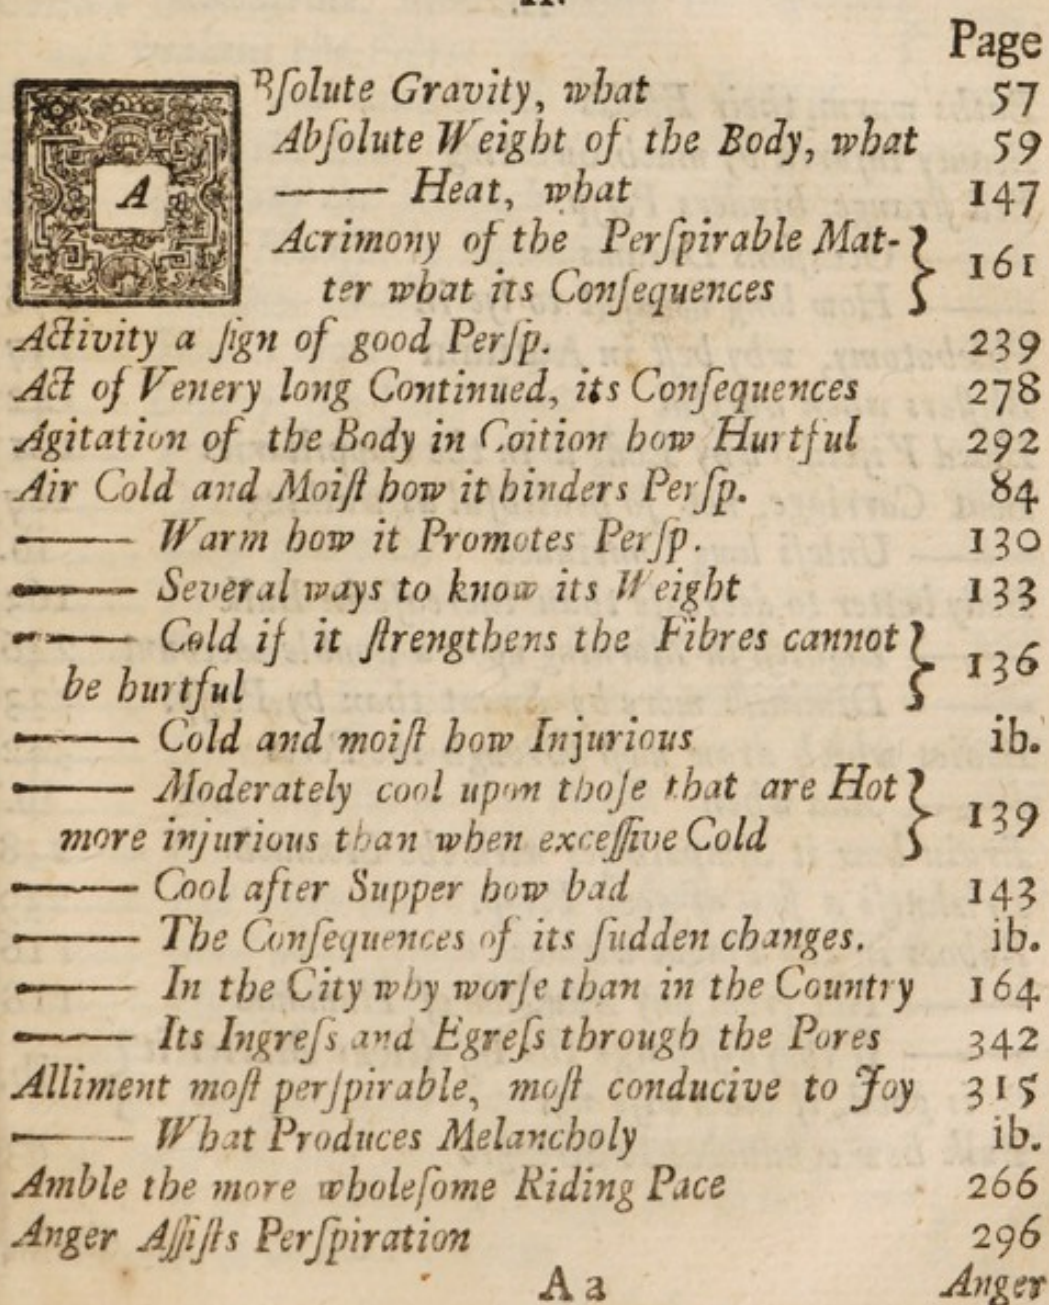 A.
Page
ABſolute Gravity, what 57
Abſolute Weight of the Body, what 59
—— Heat, what 147
Acrimony of the Perſpirable Mat-
ter what its Conſequences } 161
Activity a ſign of good Perſp. 239
Act of Venery long Continued, its Conſequences 278
Agitation of the Body in Coition how Hurtful 292
Air Cold and Moiſt how it hinders Perſp. 84
—— Warm how it Promotes Perſp. 130
—— Several ways to know its Weight 133
—— Cold if it ſtrengthens the Fibres cannot
be hurtful } 136
—— Cold and moiſt how Injurious ib.
—— Moderately cool upon thoſe that are Hot
more injurious than when exceſſive Cold } 139
—— Cool after Supper how bad 143
—— The Conſequences of its ſudden changes. ib.
—— In the City why worſe than in the Country 164
—— Its Ingreſs and Egreſs through the Pores 342
Alliment moſt perſpirable, moſt conducive to Joy 315
—— What Produces Melancholy ib.
Amble the more wholeſome Riding Pace 266
Anger Aſſiſts Perſpiration 296
A a Anger